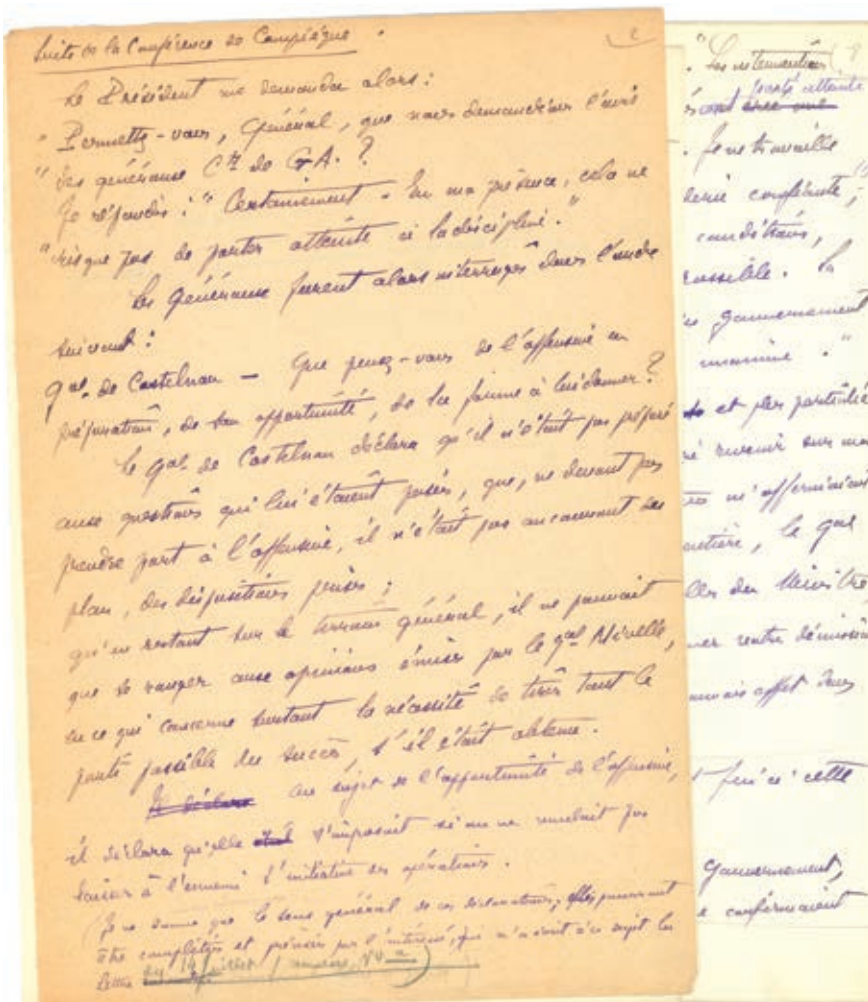 Suite de la Conférence de Compiègne.
2
Le Président me demanda alors :
" Permettez-vous, Général, que nous demandions l'avis
" des généraux Ct de G.A. ?
Je répondis : " Certainement - En ma présence, cela ne
" risque pas de porter atteinte à la discipline."
Les Généraux furent alors interrogés dans l'ordre
suivant :
Gal. de Castelnau — Que pensez-vous de l'offensive en
préparation, de son opportunité, de la forme à lui donner ?
Le Gal. de Castelnau déclara qu'il n'était pas préparé
aux questions qui lui étaient posées, que, ne devant pas
prendre part à l'offensive, il n'était pas au courant du
plan, des dispositions prises ;
qu'en restant sur le terrain général, il ne pouvait
que se ranger aux opinions émises par le gal Nivelle,
en ce qui concerne surtout la nécessité de tirer tout le
parti possible du succès, s'il était obtenu.
Il déclara au sujet de l'opportunité de l'offensive,
il déclara qu'elle s'imposait si on ne voulait pas
laisser à l'ennemi l'initiative des opérations.
(Je ne donne que le sens général de ces déclarations, elles pourront
être complétées et précisées par l'intéressé, qui m'a écrit à ce sujet la
lettre du 14 juillet )
" Les
porté atteinte
. Je ne travaille
confiante,
conditions,
possible. Il
gouvernement
unanime. "
et plus particuliè
revenir sur ma
le gal
du Ministre
votre démission
mauvais effet dans
fin à cette
Gouvernement,
confirmaient